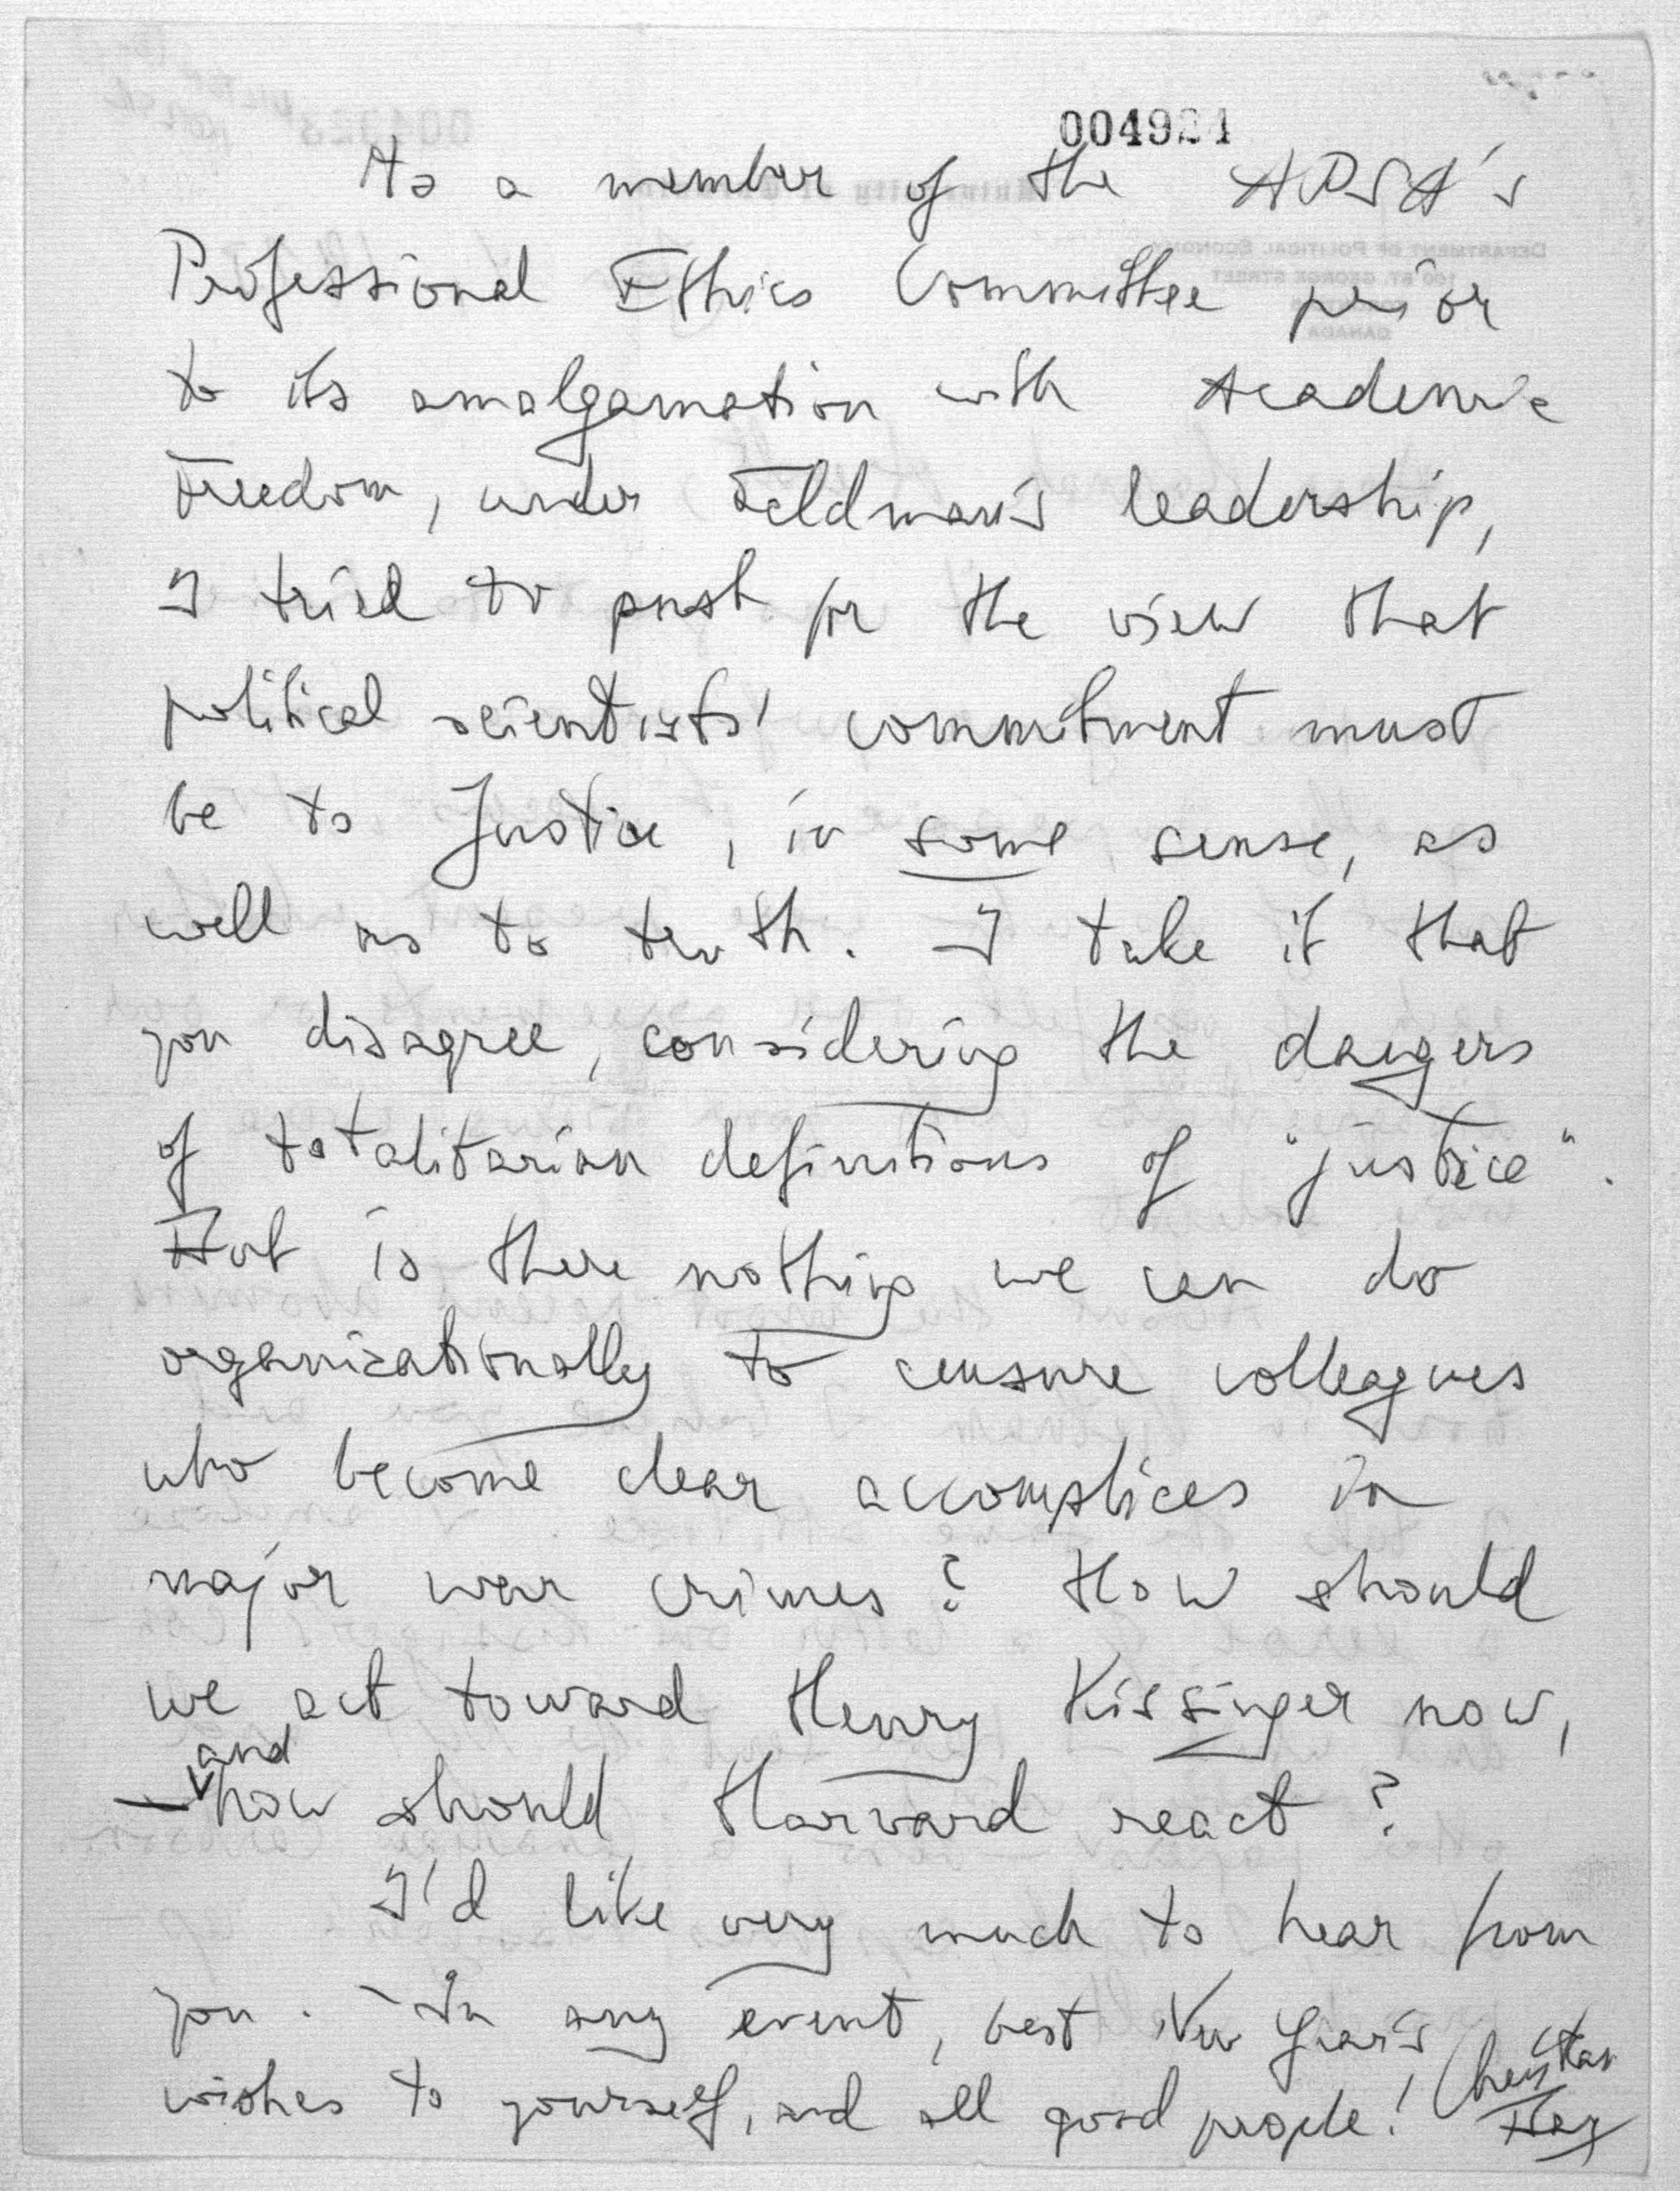 004921
As a member of the APSA's
Professional Ethics Committee prior
to its amalgamation with Academic
Freedom, under Feldman's leadership,
I tried to push for the view that
political scientists' commitment must
be to Justice, in some sense, as
well as to truth. I take it that
you disagree, considering the dangers
of totalitarian definitions of "justice".
But is there nothing we can do
organizationally to censure colleagues
who become clear accomplices in
major war crimes? How should
we act toward Henry Kissinger now,
and
how should Harvard react?
I'd like very much to hear from
you. - In any event, best New Year's
wishes to yourself, and all good people! Christian
Bay
DEPARTMENT OF POLITICAL ECONOMY
100 ST. GEORGE STREET
CANADA